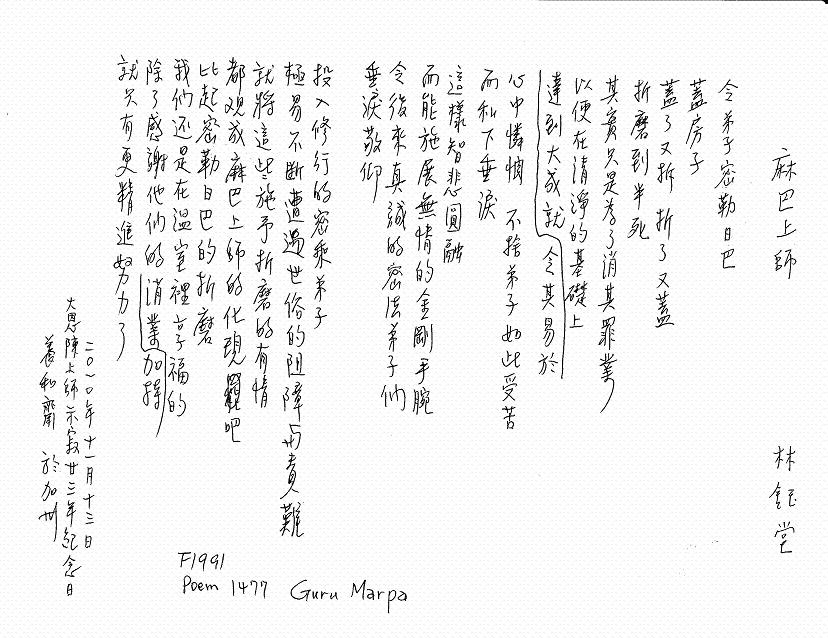 麻巴上師 林鈺堂
令弟子密勒日巴
蓋房子
蓋了又拆 拆了又蓋
折磨到半死
其實只是為了消其罪業
以便在清淨的基礎上
達到大成就 令其易於
心中憐憫 不捨弟子如此受苦
而私下垂淚
這樣智悲圓融
而能施展無情的金剛手腕
令後來真誠的密法弟子們
垂淚敬仰
投入修行的密乘弟子
極易不斷遭遇世俗的阻障与責難
就將這些施予折磨的有情
都观成麻巴上師的化現吧
比起密勒日巴的折磨
我們还是在溫室裡享福的
除了感謝他們的消業加持
就只有更精進努力了
二〇一〇年十一月十三日
大恩陳上師示寂廿三年紀念日
養和齋 於加州
F1991
Poem 1477 Guru Marpa